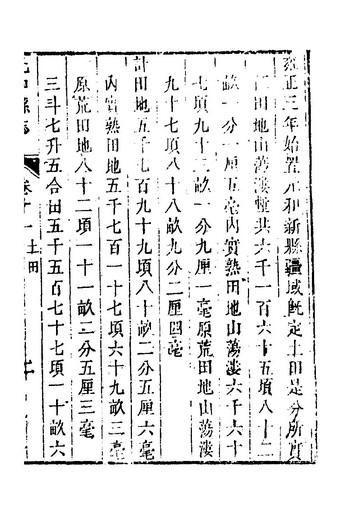 雍正三年始置元和新縣疆域旣定土田是分所實
田地山蕩漊堘共六千一百六十五頃八十二
畝一分一厘五毫內實熟田地山蕩漊六千六十
七頃九十三畝一分九厘一毫原荒田地山蕩漊
九十七頃八十八畝九分二厘四毫
計田地五千七百九十九頃八十畝二分五厘六毫
內實熟田地五千七百一十七頃六十九畝三毫
原荒田地八十二頃一十一畝二分五厘三毫
三斗七升五合田五千五百七十七頃一十畝六
元和縣志 卷十一 土田 二